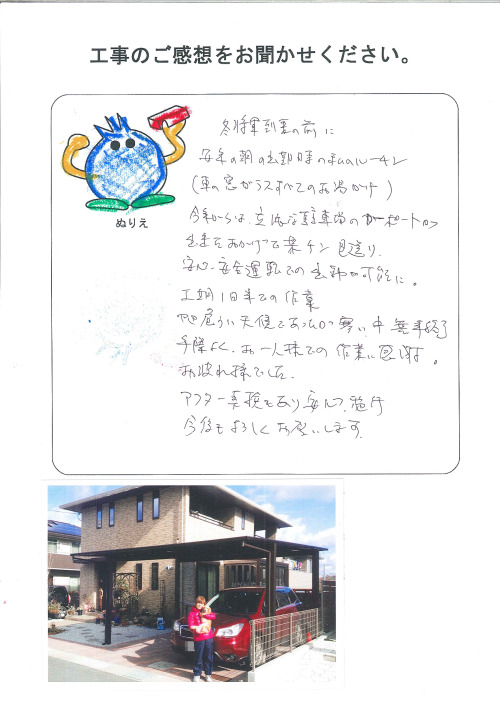 工事のご感想をお聞かせください。
ぬりえ
冬将軍到来の前に
の朝の出勤時の私のルーチン
(車の窓ガラスすべてのお湯かけ)
今年からは、立派な駐車場のカーポートが
出来たおかげで楽チン見送り、
安心、安全運転での出勤が可能に。
工期1日半での作業
天候であったり寒い中無事終了
手際よく、お一人様での作業に感謝。
お疲れ様でした。
アフター点検もあり安心
今後もよろしくお願いします